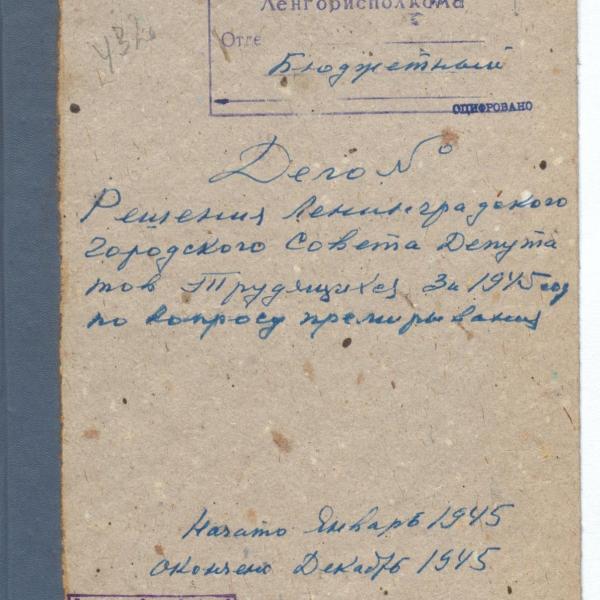 Ленгорисполкома
Отде
Бюджетный
ОЦИФРОВАНО
432
Дело №
Решения Ленинградского
Городского Совета Депута
тов Трудящихся За 1945 год
по вопросу премирывания
Начато Январь 1945
Окончено Декабрь 1945